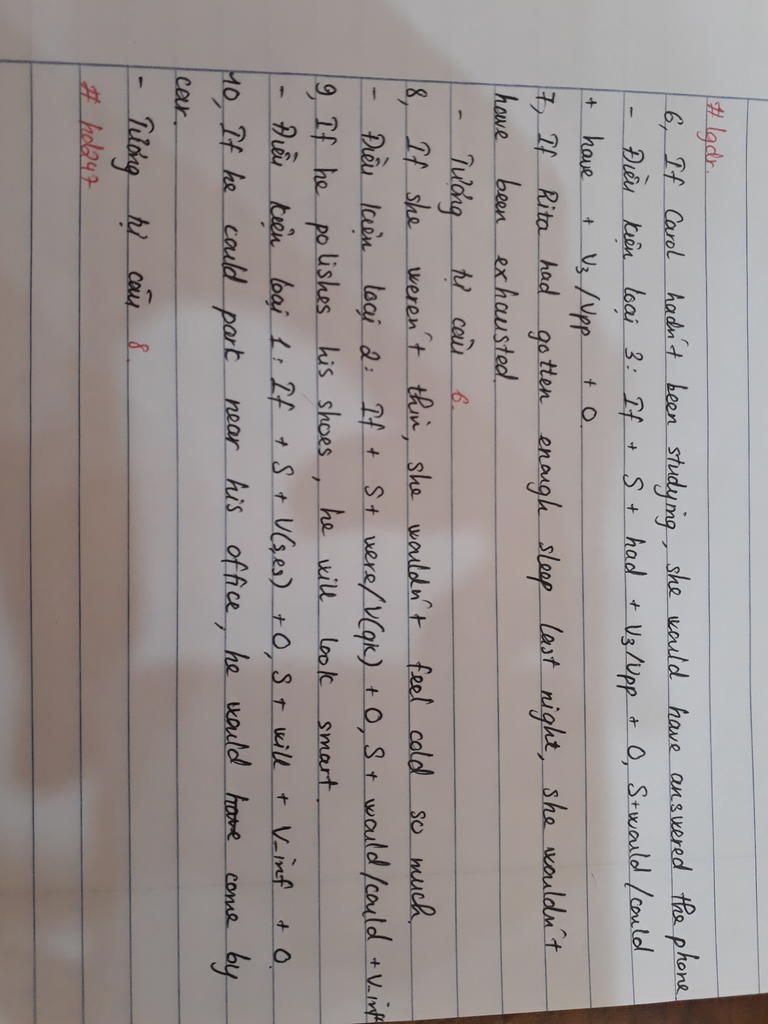 # lgdr.
6, If Carol hadn't been studying, she would have answered the phone
- Điều kiện loại 3: If + S + had + V3/Vpp + O, S+would/could
+ have + V3/Vpp + O.
7, If Rita had gotten enough sleep last night, she wouldn't
have been exhausted.
- Tương tự câu 6.
8, If she weren't thin, she wouldn't feel cold so much.
- Điều kiện loại 2: If + S+ were/V(qk) + O, S + would/could + V_inf
9, If he polishes his shoes, he will look smart.
- Điều kiện loại 1: If + S + V(s,es) + O, S + will + V_inf + O.
10, If he could park near his office, he would come by
car.
- Tương tự câu 8.
# hd247